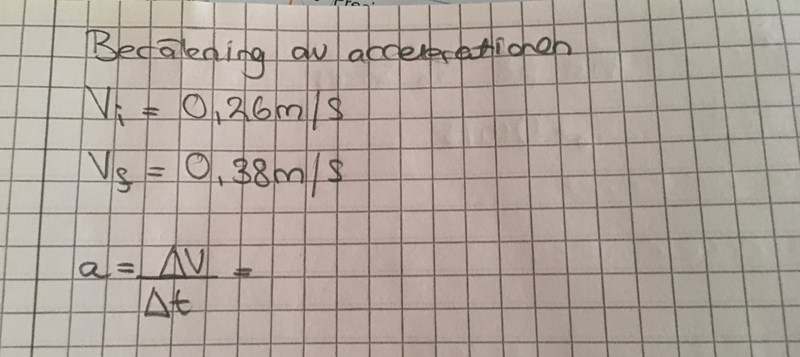 Beräkning av accelerationon
Vi = 0,26m/s
Vf = 0,38m/s
a = ΔV/Δt =